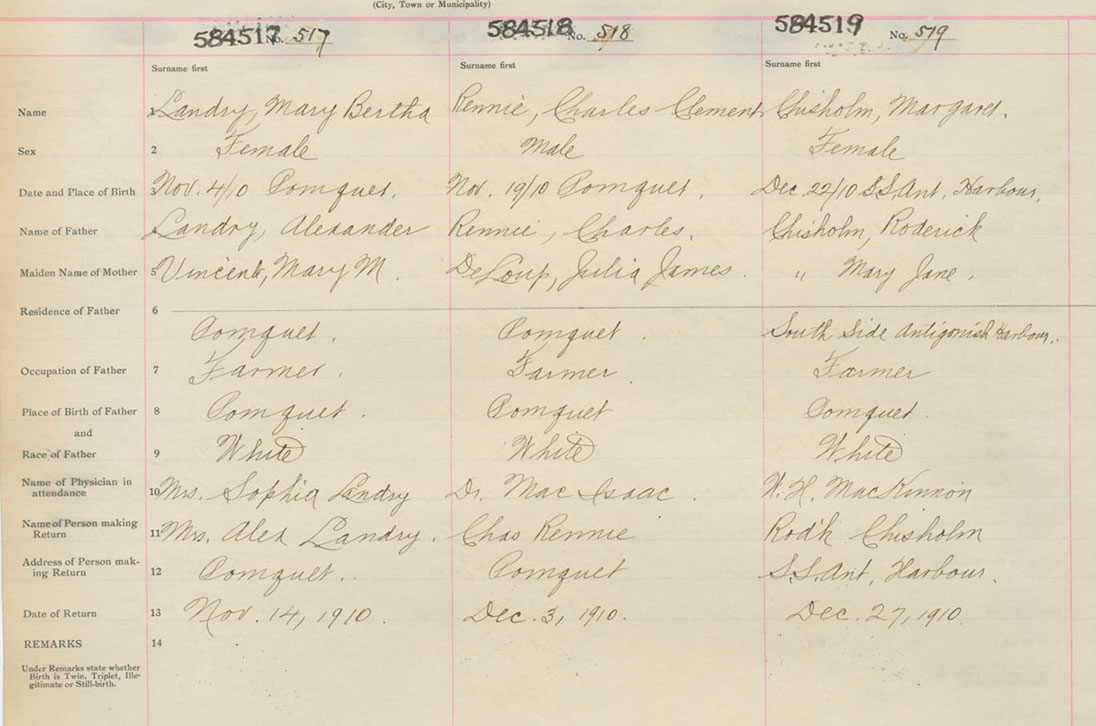 (City, Town or Municipality)
584517 No. 517 584518 No. 518 584519 No. 519
Surname first Surname first Surname first
Name 1 Landry, Mary Bertha Rennie, Charles Clement Chisholm, Margaret.
Sex 2 Female Male Female
Date and Place of Birth 3 Nov. 4/10 Pomquet. Nov. 19/10 Pomquet. Dec 22/10 S.S. Ant. Harbour.
Name of Father 4 Landry, Alexander Rennie, Charles. Chisholm, Roderick
Maiden Name of Mother 5 Vincent, Mary M. DeLoup, Julia James. " Mary Jane.
Residence of Father 6
Pomquet. Pomquet. South Side Antigonish Harbour.
Occupation of Father 7 Farmer. Farmer. Farmer
Place of Birth of Father 8 Pomquet. Pomquet Pomquet.
and
Race of Father 9 White White White
Name of Physician in
attendance 10 Mrs. Sophia Landry Dr. MacIsaac. W. H. MacKinnon
Name of Person making
Return 11 Mrs. Alex Landry. Chas Rennie Rod'k Chisholm
Address of Person mak-
ing Return 12 Pomquet.. Pomquet S.S. Ant. Harbour.
Date of Return 13 Nov. 14, 1910. Dec. 3, 1910. Dec. 27, 1910.
REMARKS 14
Under Remarks state whether
Birth is Twin, Triplet, Ille-
gitimate or Still-birth.